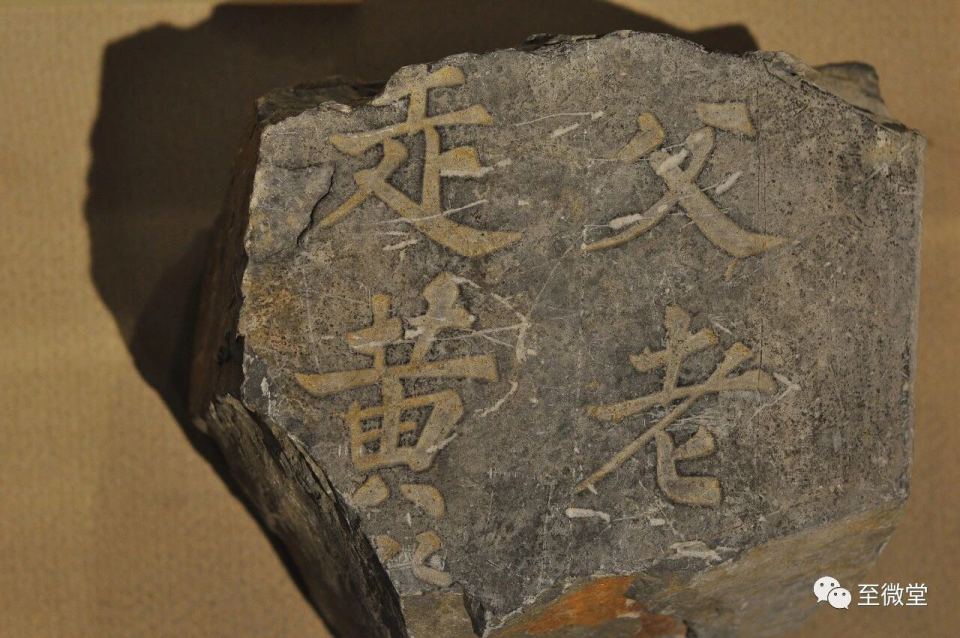 父老
走黄
至微堂